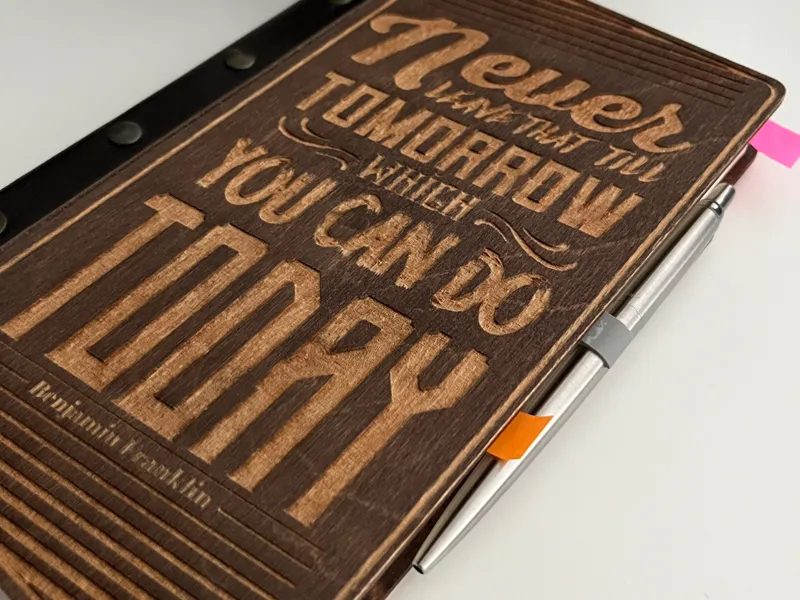 Never
LEAVE THAT TILL
TOMORROW
WHICH
YOU CAN DO
TODAY
Benjamin Franklin